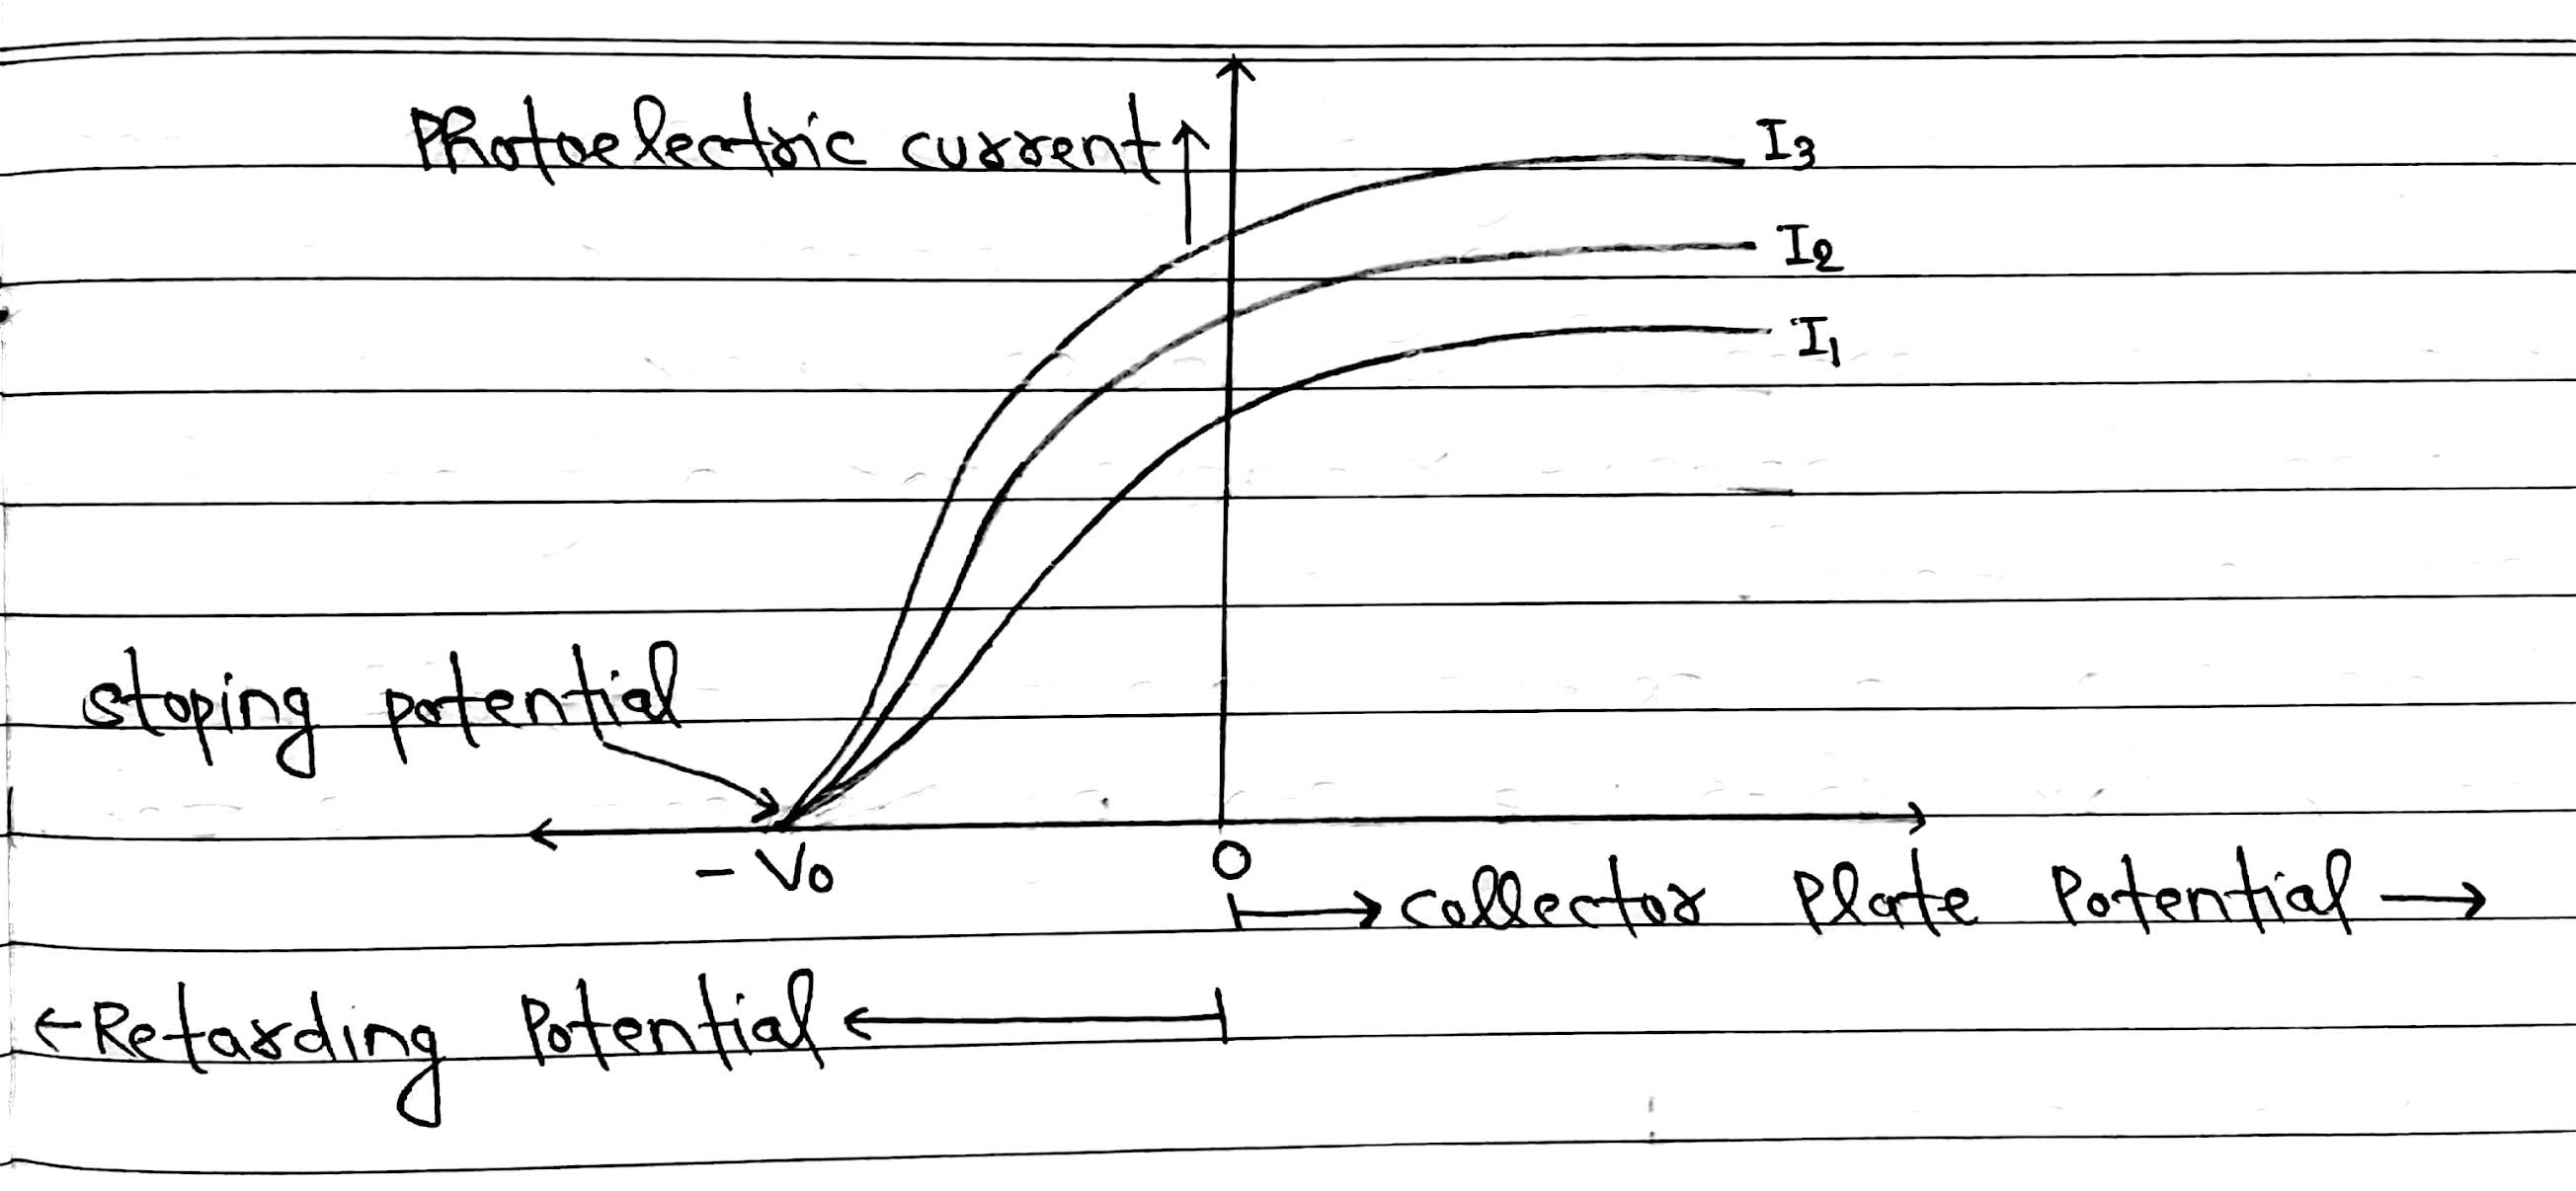 Photoelectric current
I3
I2
I1
stoping potential
- Vo
O
Collector Plate Potential
Retarding Potential